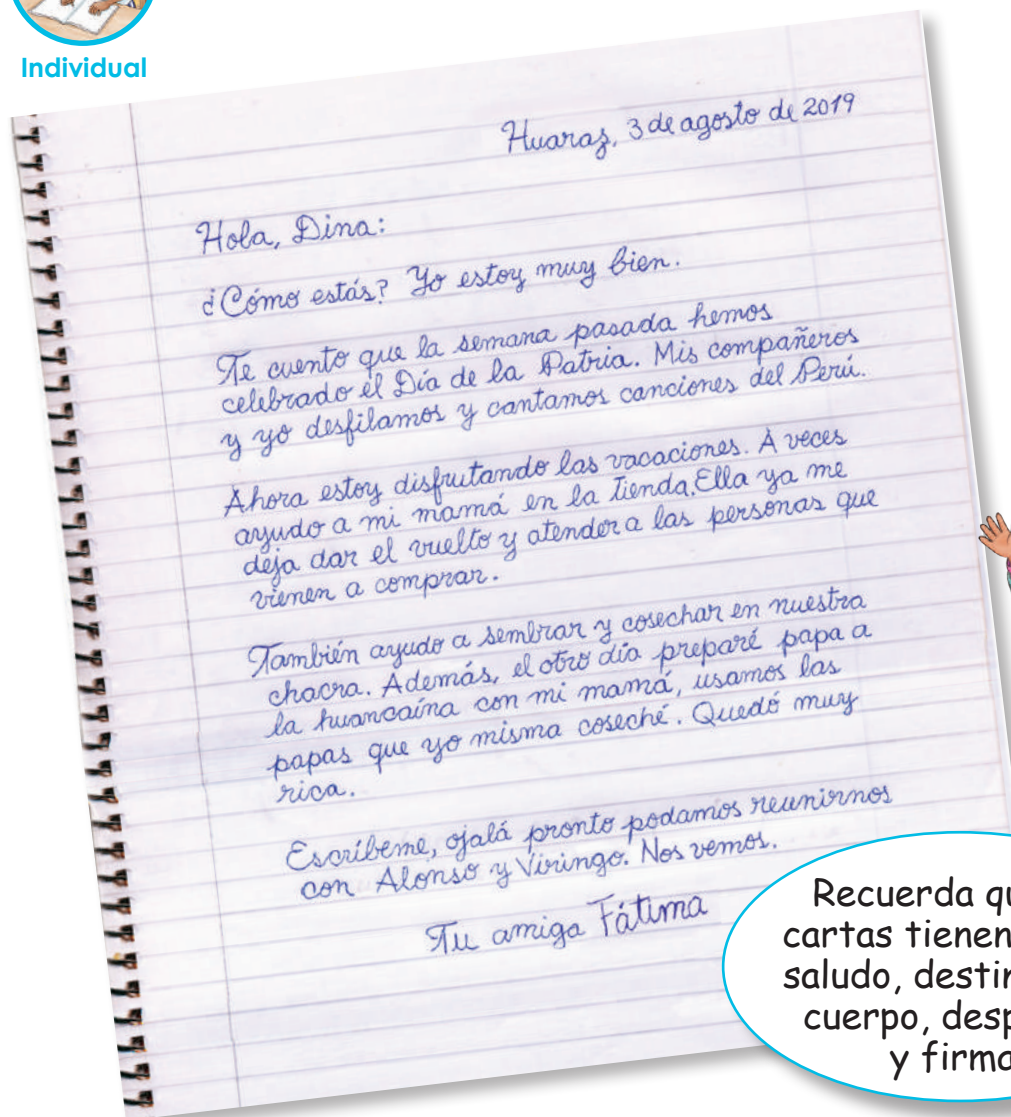 Individual
Huaraz, 3 de agosto de 2019
Hola, Dina:
¿Cómo estás? Yo estoy muy bien.
Te cuento que la semana pasada hemos
celebrado el Día de la Patria. Mis compañeros
y yo desfilamos y cantamos canciones del Perú.
Ahora estoy disfrutando las vacaciones. A veces
ayudo a mi mamá en la tienda. Ella ya me
deja dar el vuelto y atender a las personas que
vienen a comprar.
También ayudo a sembrar y cosechar en nuestra
chacra. Además, el otro día preparé papa a
la huancaína con mi mamá, usamos las
papas que yo misma coseché. Quedó muy
rica.
Escríbeme, ojalá pronto podamos reunirnos
con Alonso y Viringo. Nos vemos.
Tu amiga Fátima
Recuerda
cartas tienen
saludo,
cuerpo,
y